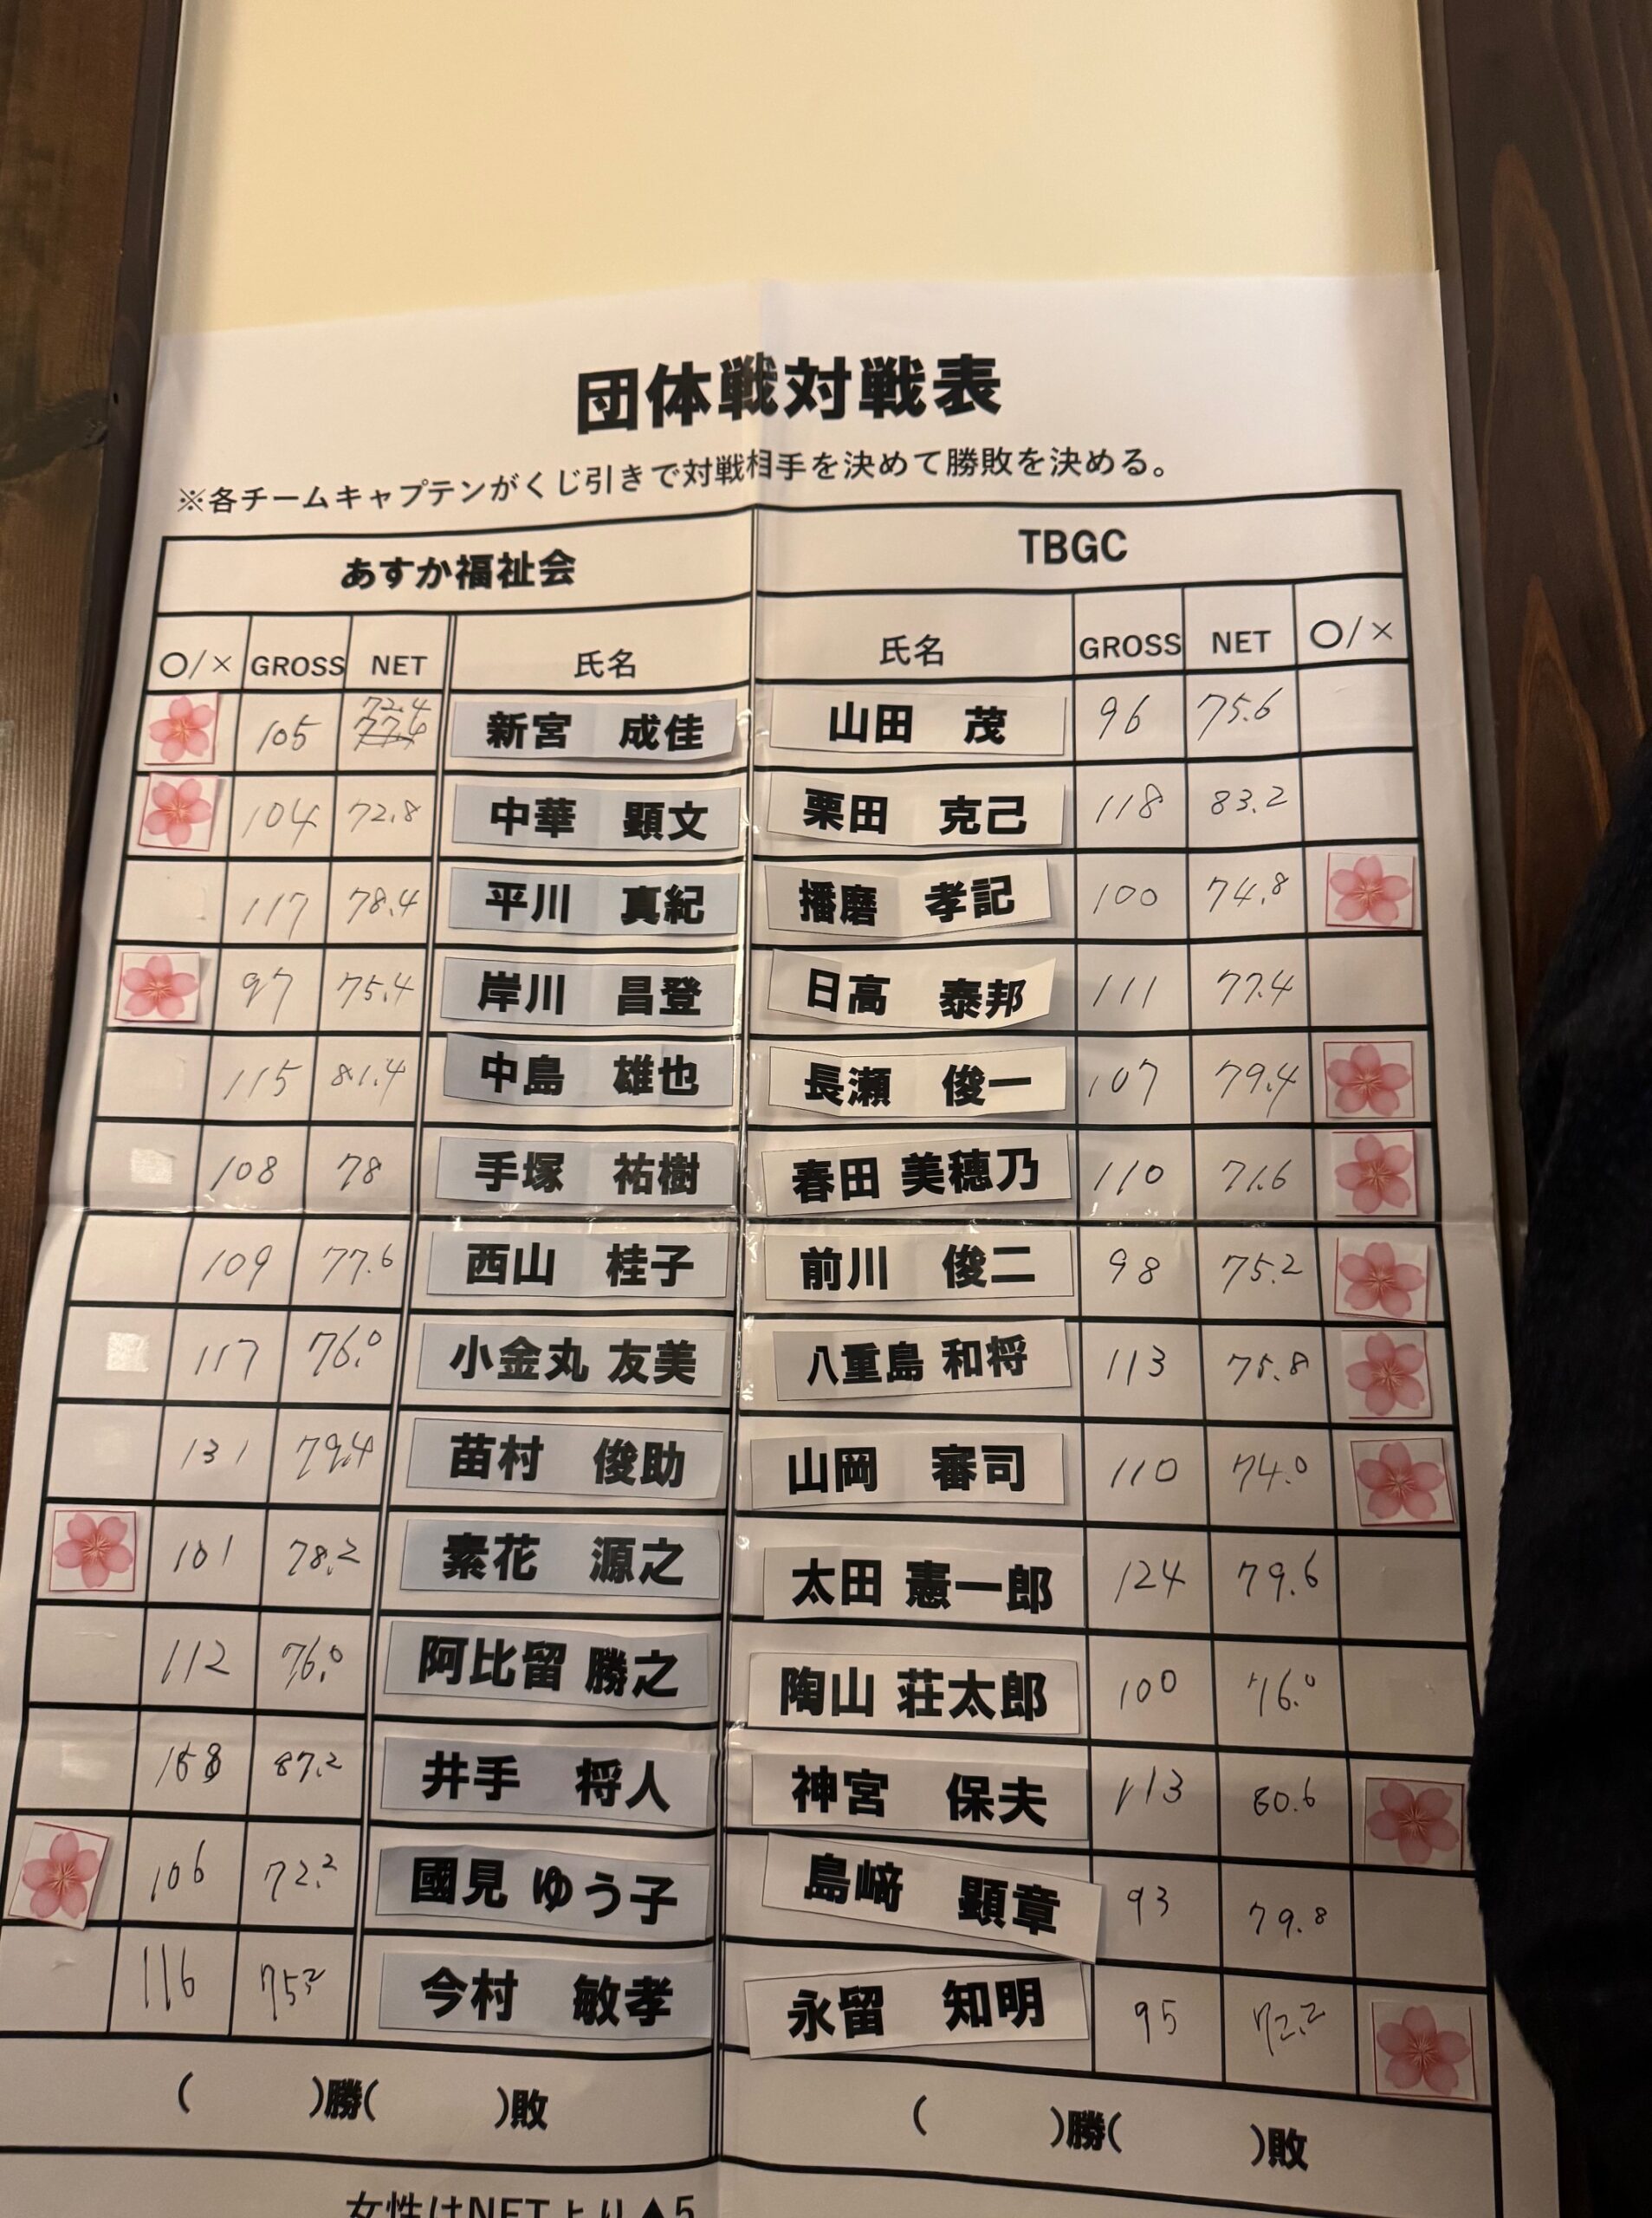 団体戦対戦表
※各チームキャプテンがくじ引きで対戦相手を決めて勝敗を決める。
あすか福祉会 TBGC
〇/× GROSS NET 氏名 氏名 GROSS NET 〇/×
105 72.4 新宮 成佳 山田 茂 96 75.6
104 72.8 中華 顕文 栗田 克己 118 83.2
117 78.4 平川 真紀 播磨 孝記 100 74.8
97 75.4 岸川 昌登 日高 泰邦 111 77.4
115 81.4 中島 雄也 長瀬 俊一 107 79.4
108 78 手塚 祐樹 春田 美穂乃 110 71.6
109 77.6 西山 桂子 前川 俊二 98 75.2
117 76.0 小金丸 友美 八重島 和将 113 75.8
131 79.4 苗村 俊助 山岡 審司 110 74.0
101 78.2 素花 源之 太田 憲一郎 124 79.6
112 76.0 阿比留 勝之 陶山 荘太郎 100 76.0
87.2 井手 将人 神宮 保夫 113 80.6
106 72.2 國見 ゆう子 島﨑 顕章 93 79.8
116 75.2 今村 敏孝 永留 知明 95 72.2
( )勝( )敗 ( )勝( )敗
女性はNETより▲5